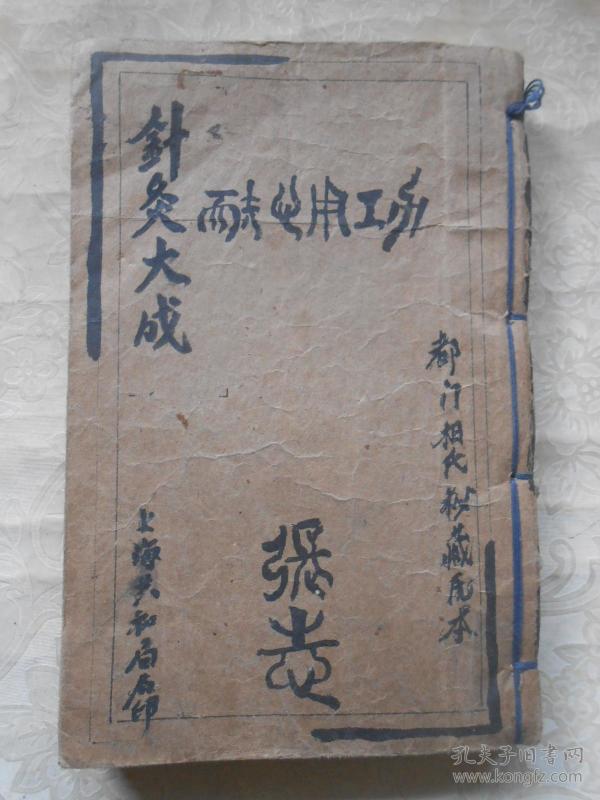 針灸大成
耐心用功
都门相氏秘藏原本
張志
上海共和局石印
孔夫子旧书网
www.kongfz.com